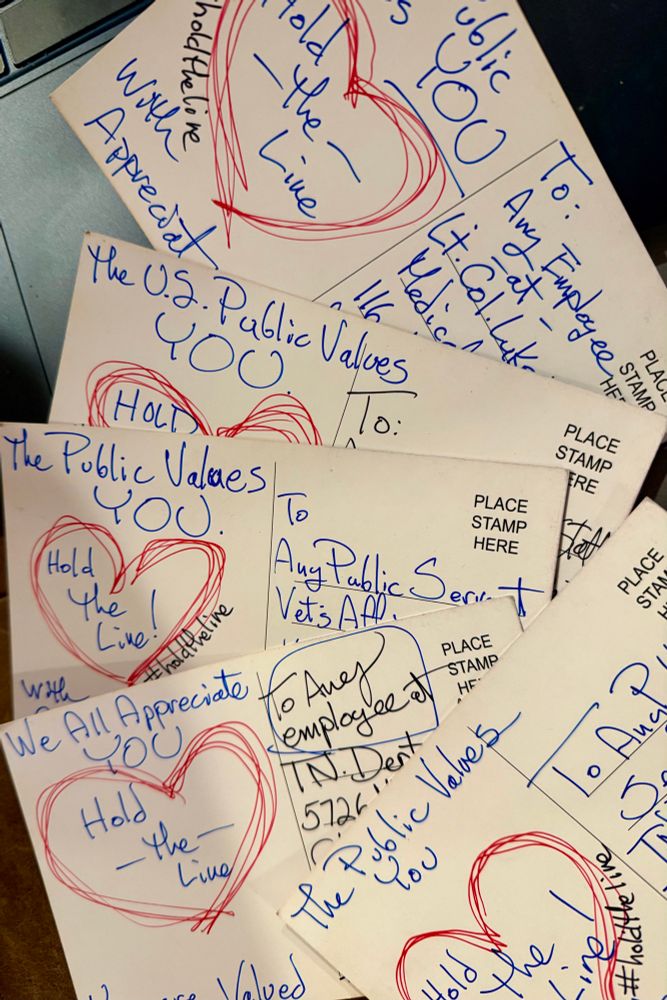 ublic
YOU
#holdtheline
Hold
-the-
Line
With
Appreciat
To:
Any Employee
-at-
Lt. Col. Luke
Medical
116
PLACE
STAMP
HERE
The U.S. Public Values
YOU.
HOLD
To:
PLACE
STAMP
HERE
The Public Values
YOU.
Hold
the
Line!
#holdtheline
With
To
Any Public Servant
Vet's Aff
PLACE
STAMP
HERE
We All Appreciate
YOU
Hold
-the-
Line
Valued
To Any
employee at
TN. Dent
5726
PLACE
STAMP
HE
The Public Values
You
Hold
the
Line!
#holdtheline
To Any P
PLACE
STAMP